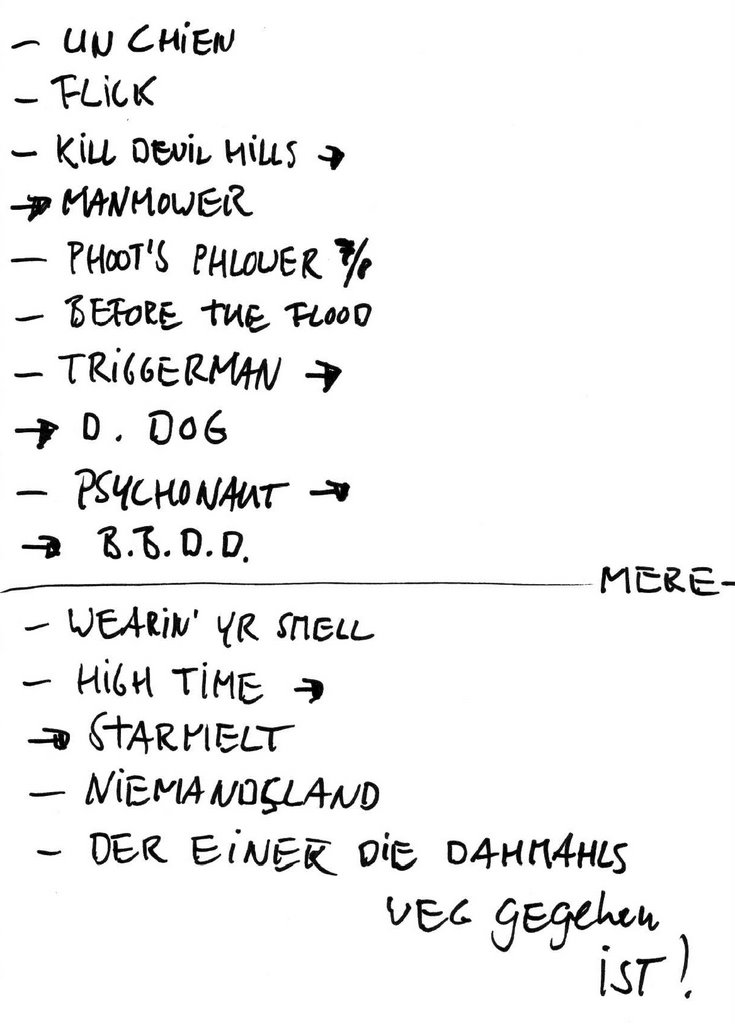 - UN CHIEN
- FLICK
- KILL DEVIL HILLS →
→ MANMOWER
- PHOOT'S PHLOWER 7/8
- BEFORE THE FLOOD
- TRIGGERMAN →
→ D. DOG
- PSYCHONAUT →
→ B.B.D.D.
MERE-
- WEARIN' YR SMELL
- HIGH TIME →
→ STARMELT
- NIEMANDSLAND
- DER EINER DIE DAHMAHLS
VEG gegehen
IST!